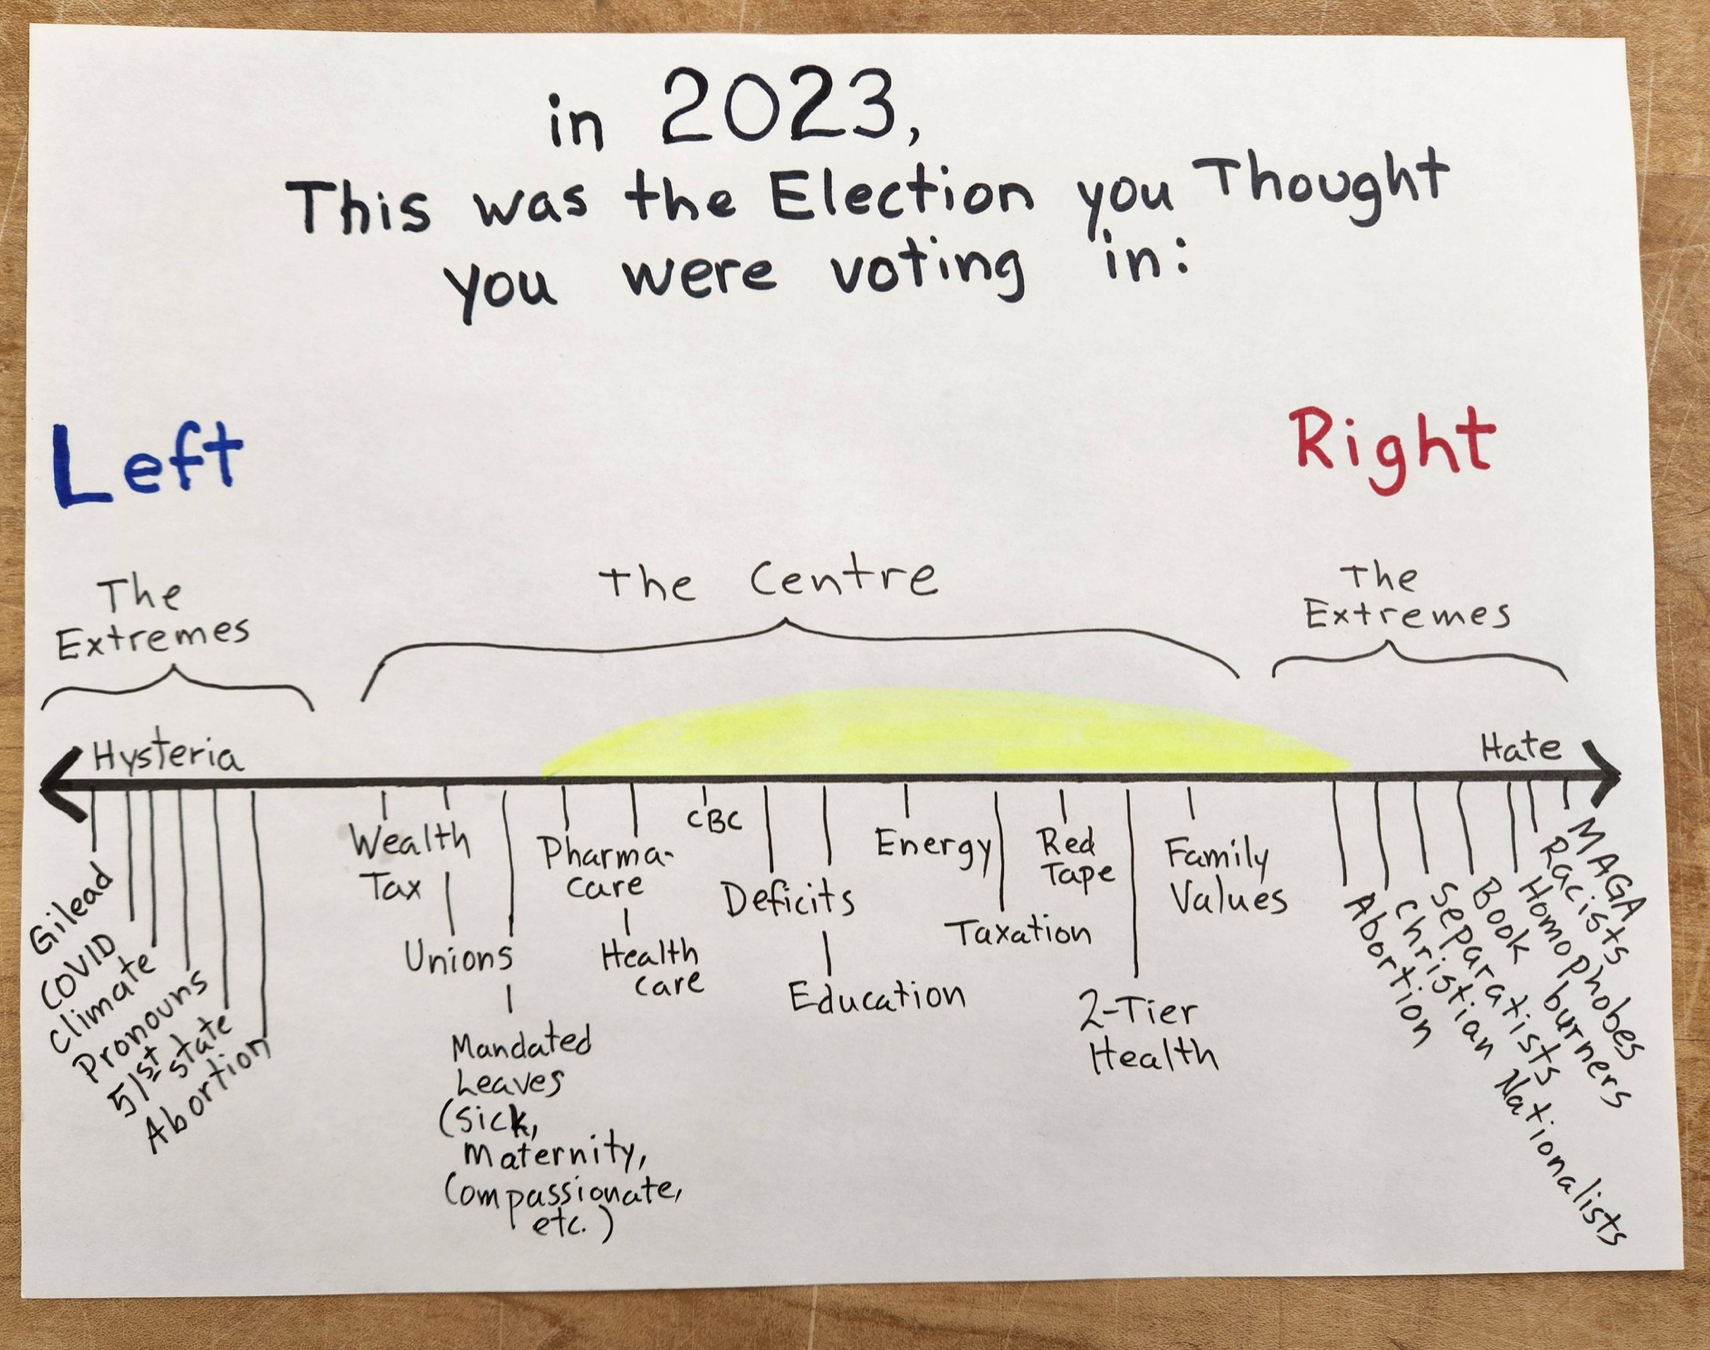 in 2023,
This was the Election you Thought
you were voting in:
Left
Right
The
Extremes
The Centre
The
Extremes
Hysteria
Hate
Gilead
COVID
climate
Pronouns
51st state
Abortion
Wealth
Tax
Unions
Mandated
Leaves
(sick,
maternity,
compassionate,
etc.)
Pharma-
care
Health
care
CBC
Deficits
Education
Energy
Taxation
Red
Tape
2-Tier
Health
Family
Values
Abortion
Christian Nationalists
Separatists
Book burners
Homophobes
Racists
MAGA